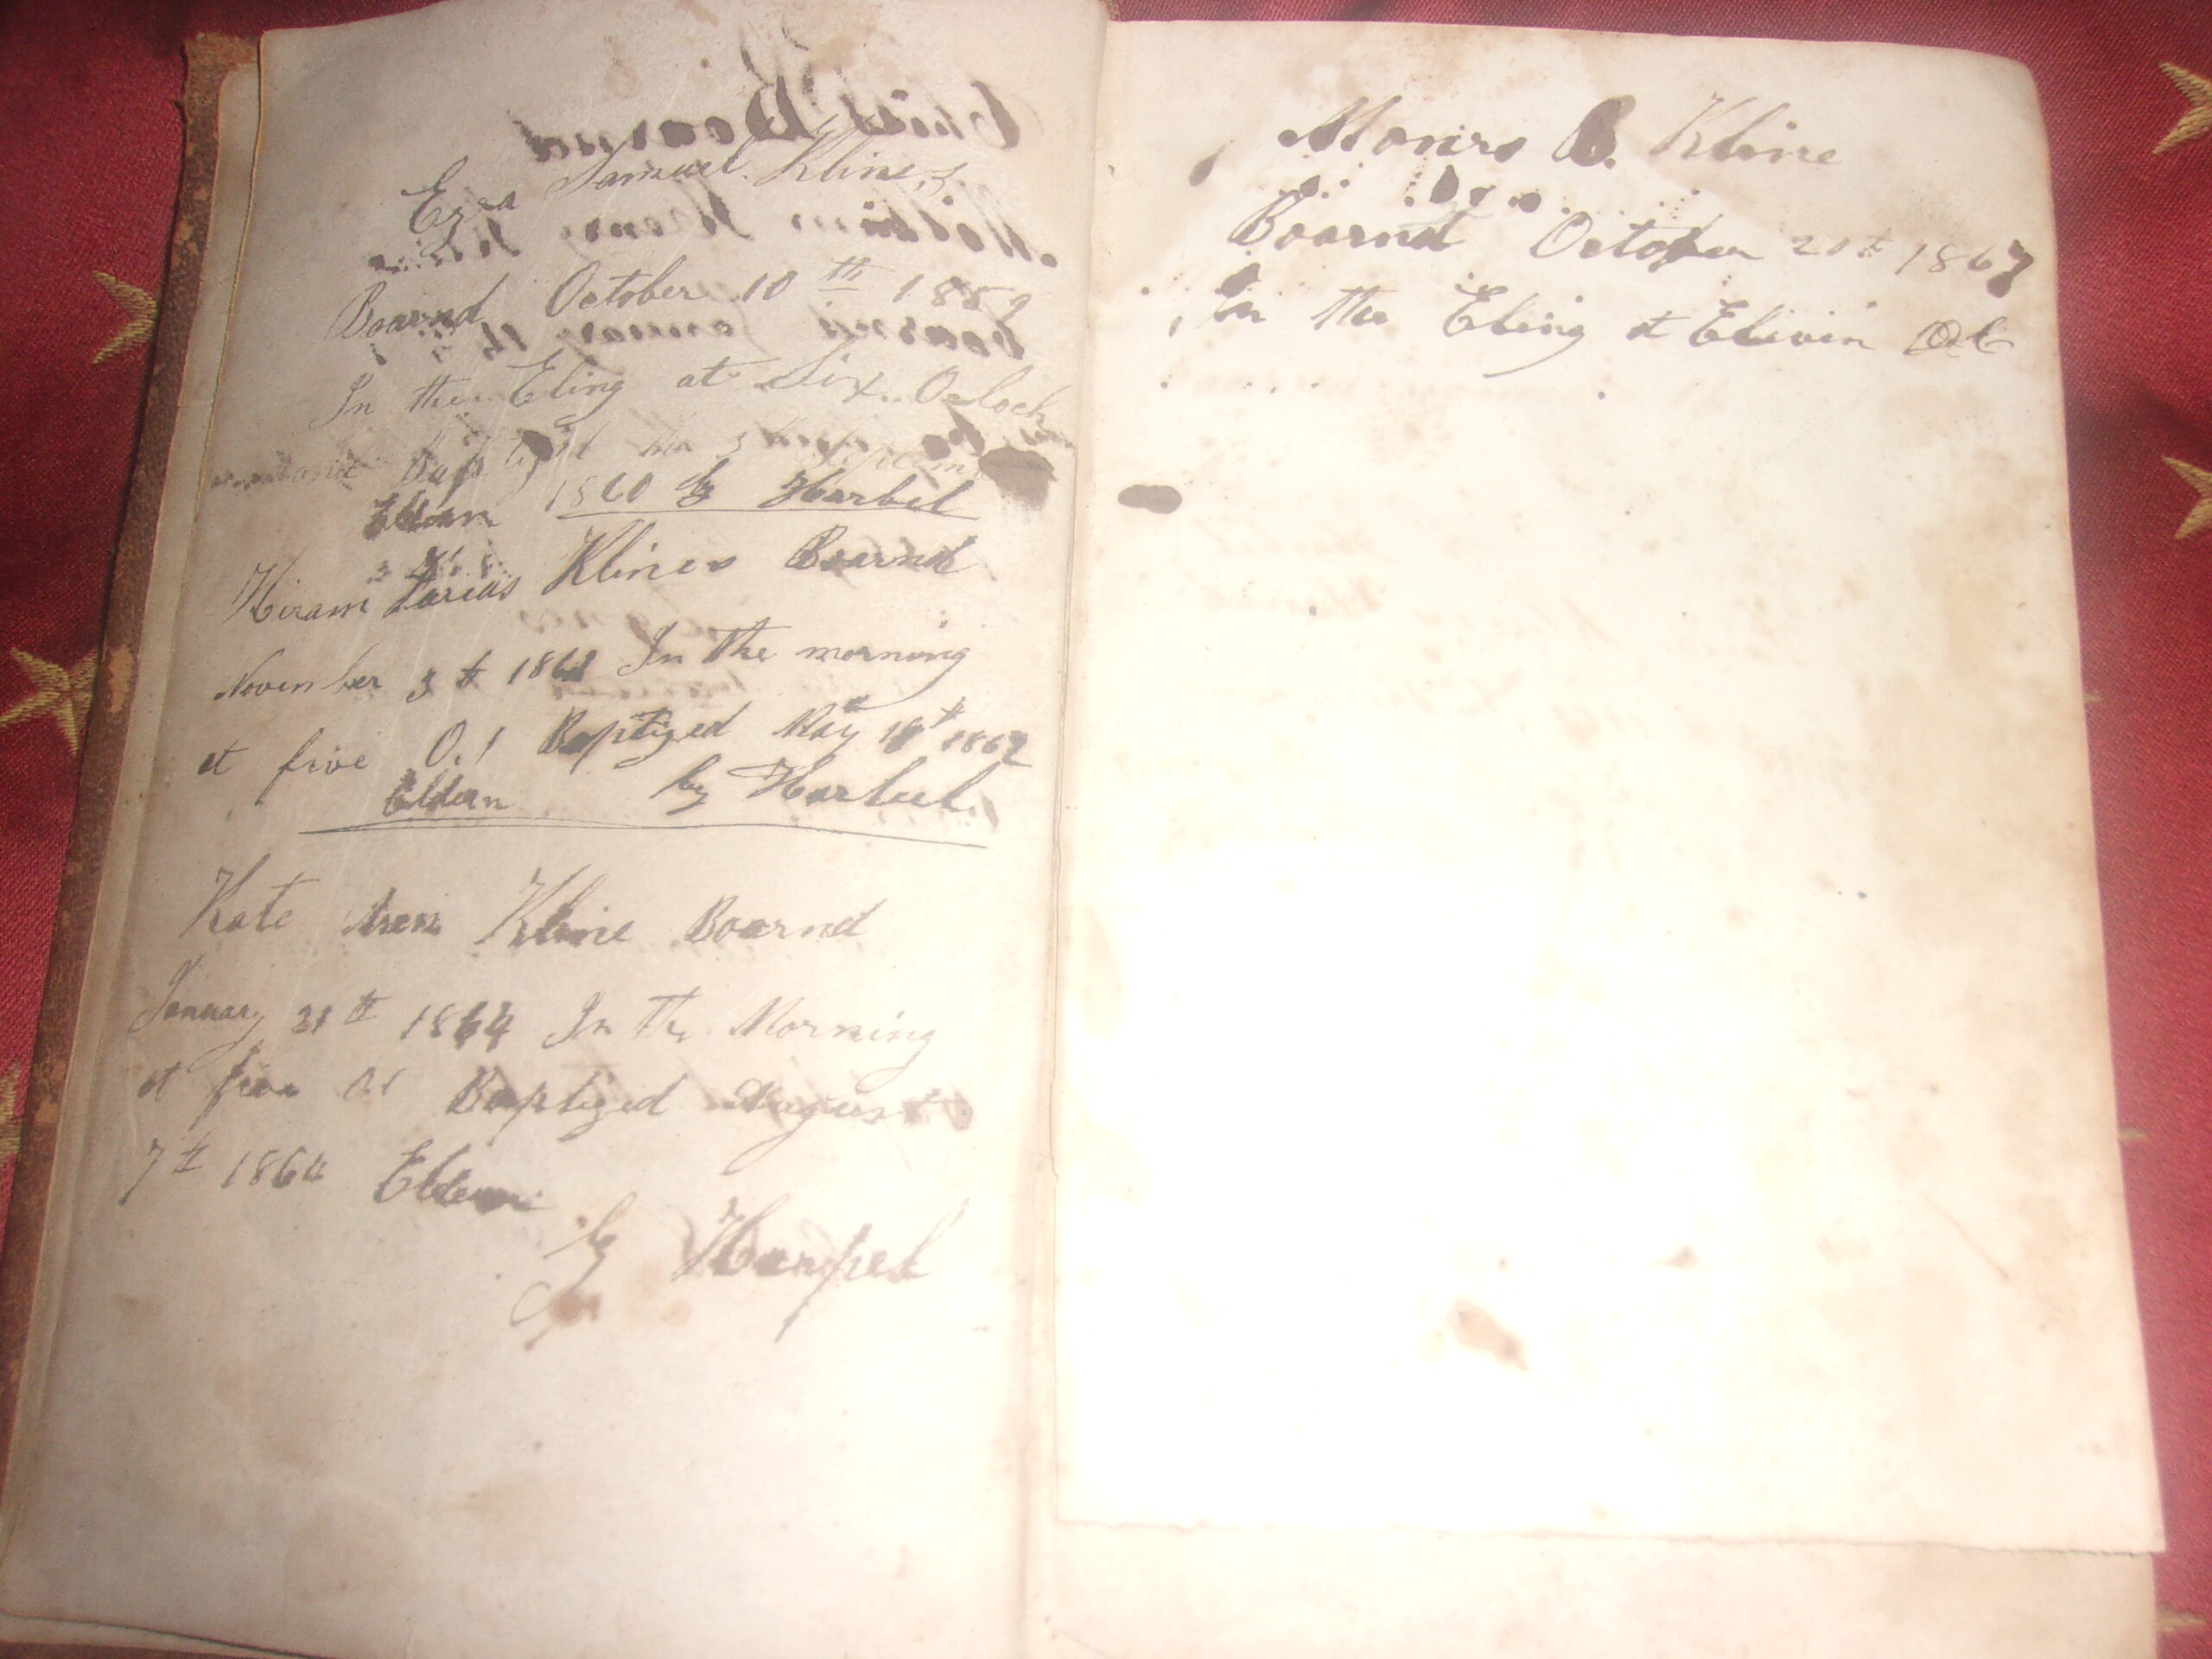 Ezra Samuel Kline,s
Boarnd October 10th 1859
In the Eling at Six Oclock
and Baptized
Eldern 1860 by Harbel
Hiram Klines Boarnd
November 3th 1861 In the morning
at five O.l Baptized May 18th 1862
Eldern by Harbel
Kate Kline Boarnd
January 31th 1864 In the Morning
at five O.l Baptized August
7th 1864 Eldern
by Harpel
Monro B. Kline
Boarnd October 20th 1867
In the Eling at Elivin Ocl